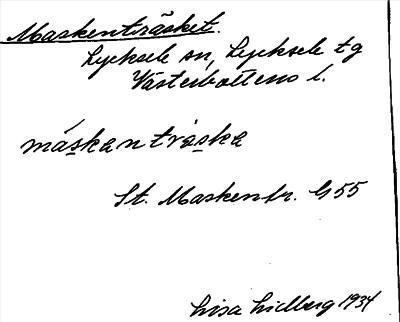 Maskenträsket.
Lycksele sn, Lycksele tg
Västerbottens l.
máskan trạ̈ska
St. Maskentr. G 55
Lisa Lidberg 1934